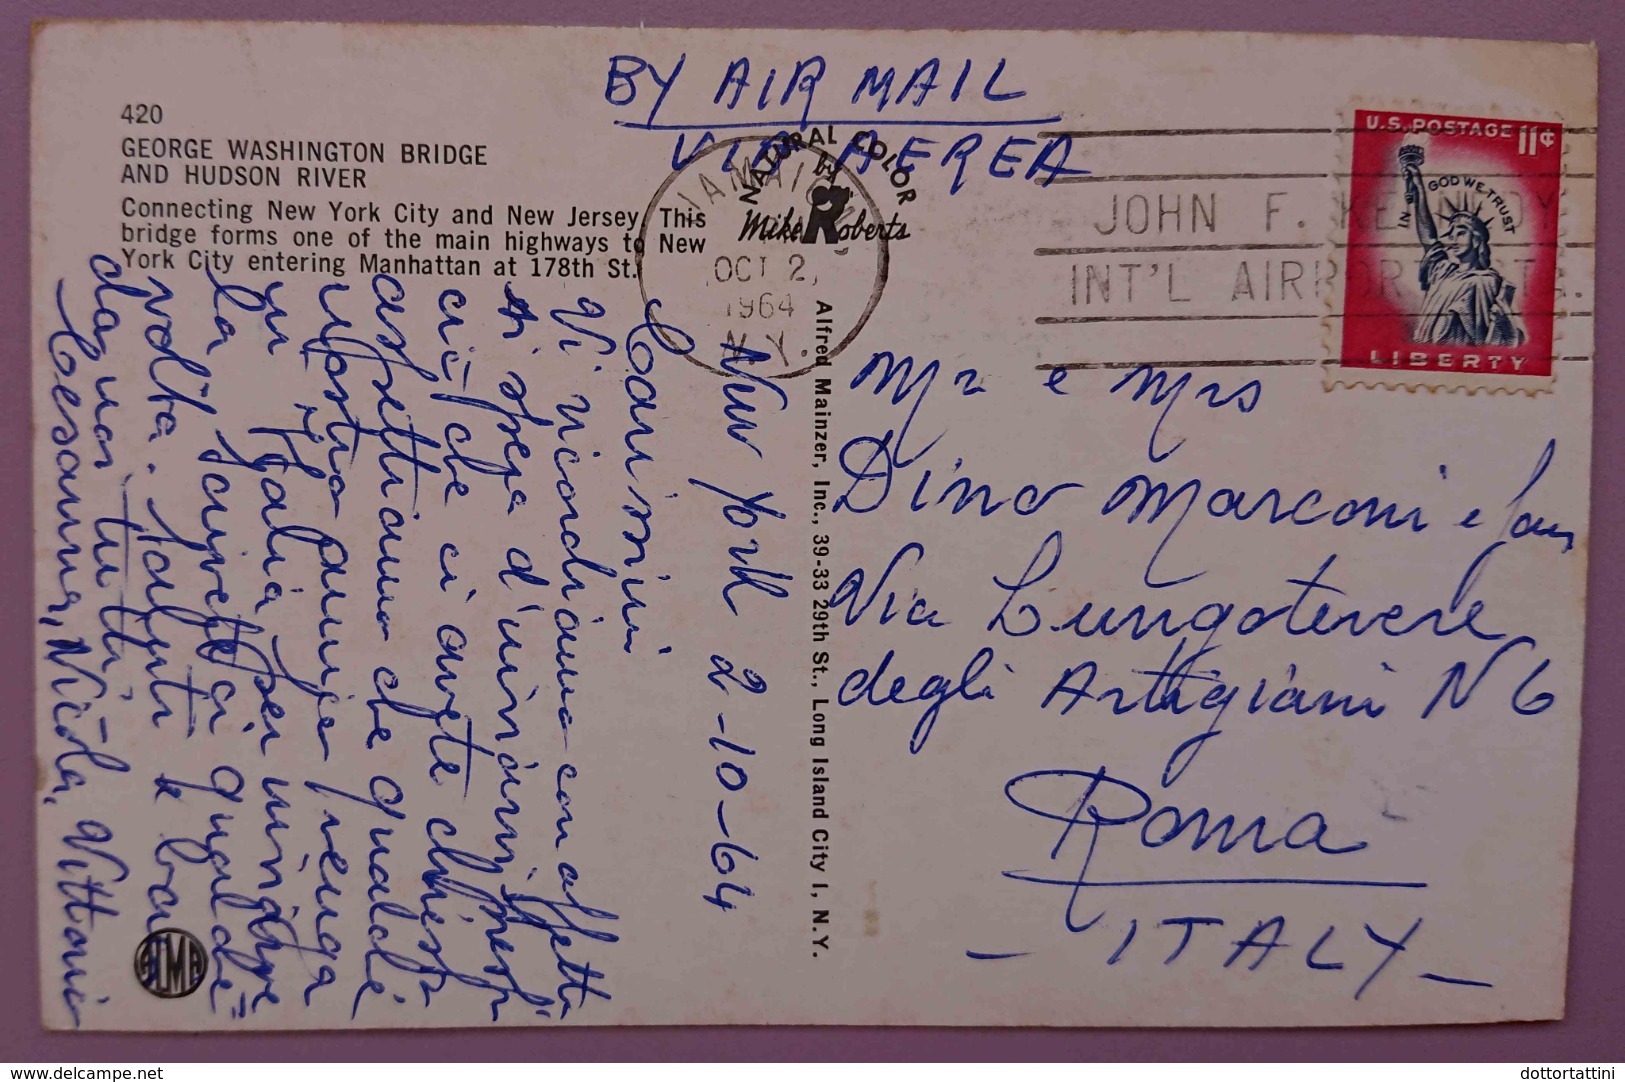 BY AIR MAIL
VIA AEREA
420
GEORGE WASHINGTON BRIDGE
AND HUDSON RIVER
Connecting New York City and New Jersey. This
bridge forms one of the main highways to New
York City entering Manhattan at 178th St.
NATURAL COLOR
Mike Roberts
JAMAICA,
OCT 2,
1964
N.Y.
JOHN F. KENNEDY
INT'L AIRPORT STA.
U.S. POSTAGE 11¢
IN GOD WE TRUST
LIBERTY
Alfred Mainzer, Inc., 39-33 29th St., Long Island City 1, N.Y.
New York 2-10-64
Carissimi
Vi ricordiamo con affetto
ci avete chiesto
aspettiamo che qualche
vostro venga
in Italia per
La scrivete ci qualche
volta. Saluti e baci
da noi tutti
Cesarina, Nicola, Vittorio
Mr e Mrs
Dino Marconi e fam
Via Lungotevere
degli Artigiani N 6
Roma
- ITALY -
Delcampe.net
dottortattini